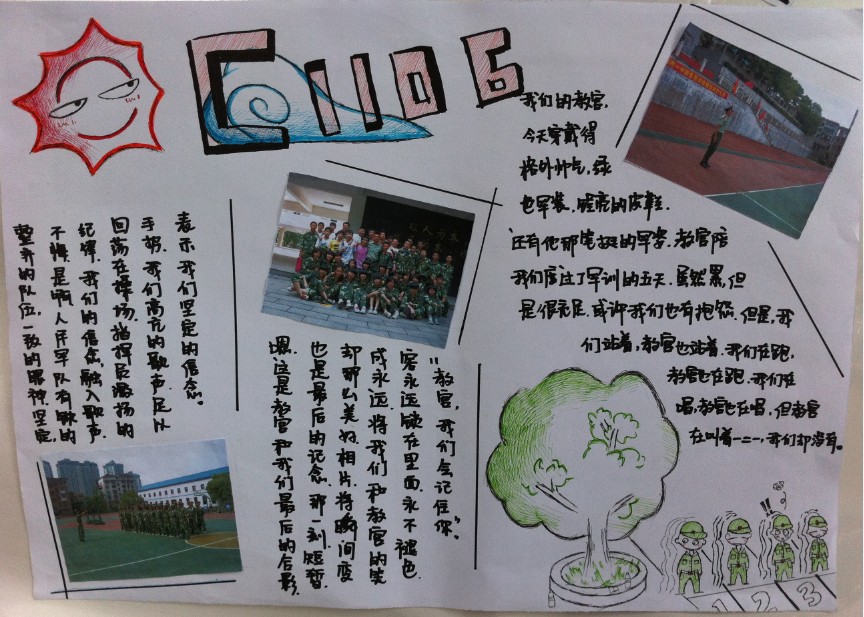 C1106
我们的教官,
今天穿戴得
格外帅气,绿
也军装、锃亮的皮鞋.
还有他那笔挺的军姿.教官陪
我们度过了军训的五天.虽然累,但
是很充足.或许我们也有抱怨.但是,我
们站着,教官也站着.我们在跑,
教官也在跑.我们在
唱,教官也在唱,但教官
在叫着一二一,我们却没有.
整齐的队伍,一致的眼神.坚定,
不愧是啊人民军队有铁的
纪律.我们的信念,融入歌声.
回荡在操场.指挥员激扬的
手势.我们高亢的歌声足以
表示我们坚定的信念。
嗯.这是教官和我们最后的合影.
也是最后的记念.那一刻,短暂
却那么美如相片.将瞬间变
成永远.将我们和教官的笑
容永远锁在里面.永不褪色.
"教官,我们会记住你"。
1 2 3